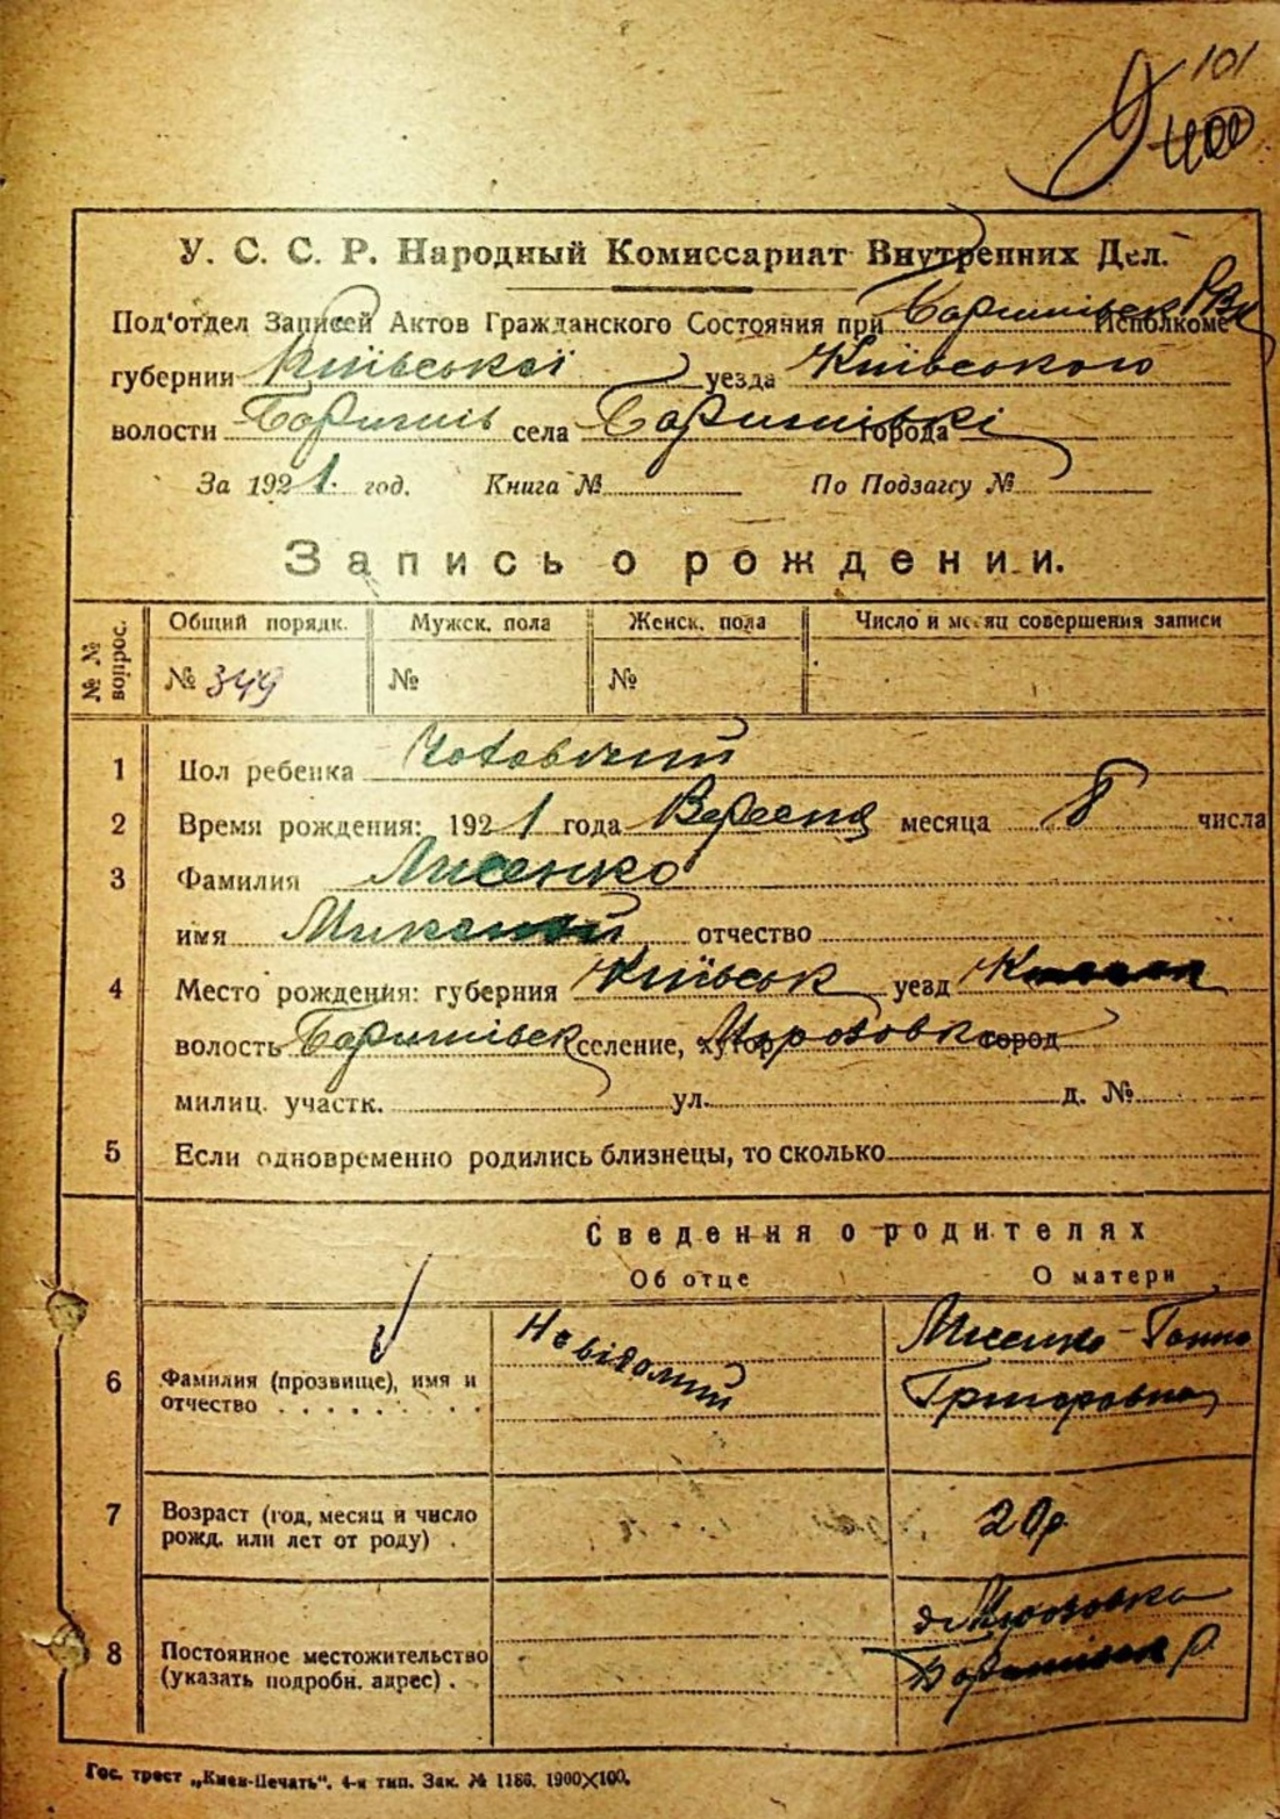 101
400
У. С. С. Р. Народный Комиссариат Внутренних Дел.
Под'отдел Записей Актов Гражданского Состояния при Баришівськ РВК Исполкоме
губернии Київської уезда Київського
волости Баришів села Баришівкі города
За 1921. год. Книга № По Подзагсу №
Запись о рождении.
№ № вопрос.
Общий порядк. Мужск. пола Женск. пола Число и месяц совершения записи
№ 349 № №
1 Пол ребенка Чоловічий
2 Время рождения: 1921 года Вересня месяца 8 числа
3 Фамилия Лисенко
имя отчество
4 Место рождения: губерния Київськ уезд
волость Баришівськ селение, хутор Морозовк город
милиц. участк. ул. д. №
5 Если одновременно родились близнецы, то сколько
Сведения о родителях
Об отце О матери
6 Фамилия (прозвище), имя и отчество . . . . . . . . . Невідомий Лисенко-Ганна Григоровна
7 Возраст (год, месяц и число рожд. или лет от роду) . 20р
8 Постоянное местожительство (указать подробн. адрес) . . Морозовка р.
Гос. трест „Киев-Печать". 4-я тип. Зак. № 1186. 1900×100.